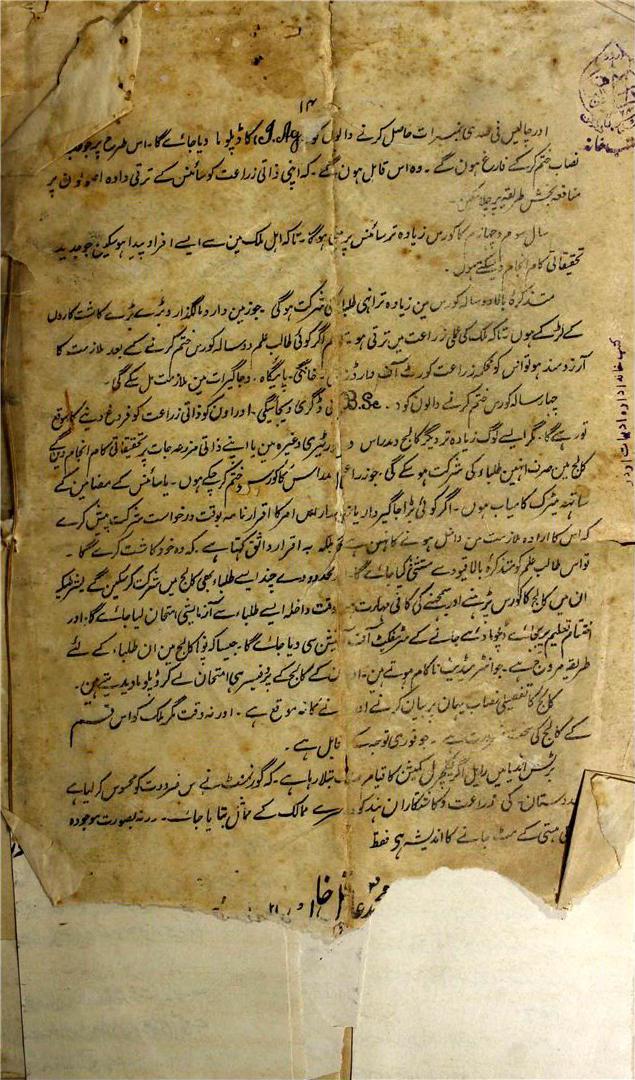 ۱۴
اور چالیس فی صدی نمبرات حاصل کرنے والوں کو I.Ag. کا ڈپلوما دیا جائے گا۔ اس طرح پر جو طلبہ
نصاب ختم کر کے فارغ ہون گے۔ وہ اس قابل ہون گے۔ کہ اپنی ذاتی زراعت کو سائنس کے ترقی دادہ اصولون پر
منافعہ بخش طریقہ پر چلا سکین۔
سال سوم و چہارم کا کورس زیادہ تر سائنس پر مبنی ہوگا۔ تاکہ اہل ملک مین سے ایسے افراد پیدا ہوسکین جو جدید
تحقیقاتی کام انجام دیسکتے ہوں۔
متذکرۂ بالا دو سالہ کورس مین زیادہ تر انہی طلباء کی شرکت ہوگی جو زمین دار و مالگذار و بڑے بڑے کاشتکاروں
کے لڑکے ہوں تاکہ ملک کی عملی زراعت میں ترقی ہو۔ تاہم اگر کوئی طالب علم دو سالہ کورس ختم کرنے کے بعد ملازمت کا
آرزو مند ہو تو اس کو محکمہ زراعت کورٹ آف وارڈز۔ خانگی۔ پائیگاہ۔ و جاگیرات مین ملازمت مل سکے گی۔
چہار سالہ کورس ختم کرنے والون کو B.Sc. کی ڈگری دیجائیگی۔ اور اون کو ذاتی زراعت کو فروغ دینے کا موقع
تو رہے گا۔ مگر ایسے لوگ زیادہ تر دیگر کالج و مدارس و لیبوریٹری وغیرہ مین یا اپنے ذاتی مزرعہ جات پر تحقیقاتی کام انجام دین گے
کالج میں صرف انہین طلباء کی شرکت ہو سکے گی جو زراعتی مدارس کا کورس ختم کر چکے ہوں۔ یا سائنس کے مضامین کے
ساتھ مٹرک کامیاب ہوں۔ اگر کوئی بڑا جاگیردار یا زمیندار اس امر کا اقرار نامہ بوقت درخواست شرکت پیش کرے
کہ اس کا ارادہ ملازمت مین داخل ہونے کا نہین ہے بلکہ یہ اقرار واثق کہتا ہے۔ کہ وہ خود کاشت کرے گا۔
تو اس طالب علم کو متذکرہ بالا قیود سے مستثنیٰ کیا جائے گا۔ محدودے چند ایسے طلباء بھی کالج میں شرکت کرسکین گے بشرطیکہ
ان میں کالج کا کورس پڑہنے اور سمجھنے کی کافی مہارت ہو۔ وقت داخلہ ایسے طلباء سے آزمایشی امتحان لیا جائے گا۔ اور
اختتام تعلیم پر بجائے ڈپلوما دے جانے کے سرٹیفکٹ آف دیا جائے گا۔ جیسا کہ پونا کالج مین ان طلباء کے لئے
طریقہ مروج ہے۔ جو انٹرمیڈیٹ ناکام ہوتے مین۔ ان کے کالج کے پروفیسر ہی امتحان لے کر ڈپلوما دیدیتے ہین۔
کالج کا تفصیلی نصاب یہان پر بیان کرنے کا نہ موقع ہے۔ اور نہ وقت مگر ملک کو اس قسم
کے کالج کی سخت ضرورت ہے۔ جو فوری توجہ کے قابل ہے۔
برٹش انڈیا میں رایل اگریکلچرل کمیشن کا قیام بتلا رہا ہے۔ کہ گورنمنٹ نے اس ضرورت کو محسوس کرلیا ہے
ہندوستان کی زراعت و کاشتکاران ہند کو دوسرے ممالک کے مماثل بنایا جائے۔ ورنہ بصورت موجودہ
ہستی کے مٹ جانے کا اندیشہ ہی فقط
محمد
خان
۲۱
کتب خانہ ادارہ ادبیات اردو
کتب خانہ